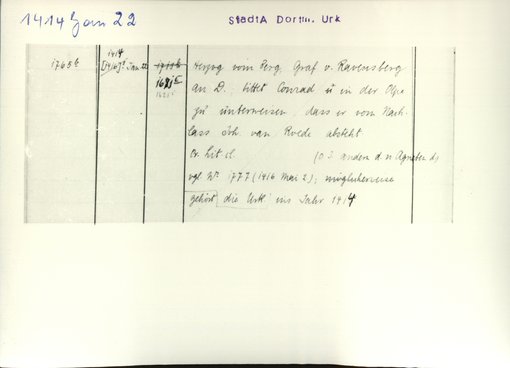 1414 Jan 22
StadtA Dortm. Urk
1414
1765b [1416]? Jan. 22 1719b Herzog vom Berg, Graf v. Ravensberg
1625c an D. bittet Conrad u in der
1625c zu unterweisen, dass er vom Nach-
lass Joh. van Rode absteht.
Or. lit. cl. (D 3 andern d. n Agneten d)
vgl. Nr 1777 (1416 Mai 2); möglicherweise
gehört die Urk. ins Jahr 1414